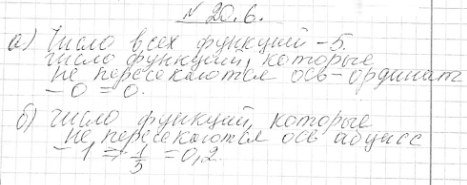 № 20.6.
а) Число всех функций – 5.
число функции, которые
не пересекаются ось-ординат
– 0 = 0.
б) число функций, которые
не пересекаются ось абцисс
– 1 ⇒ 1/5 = 0,2.